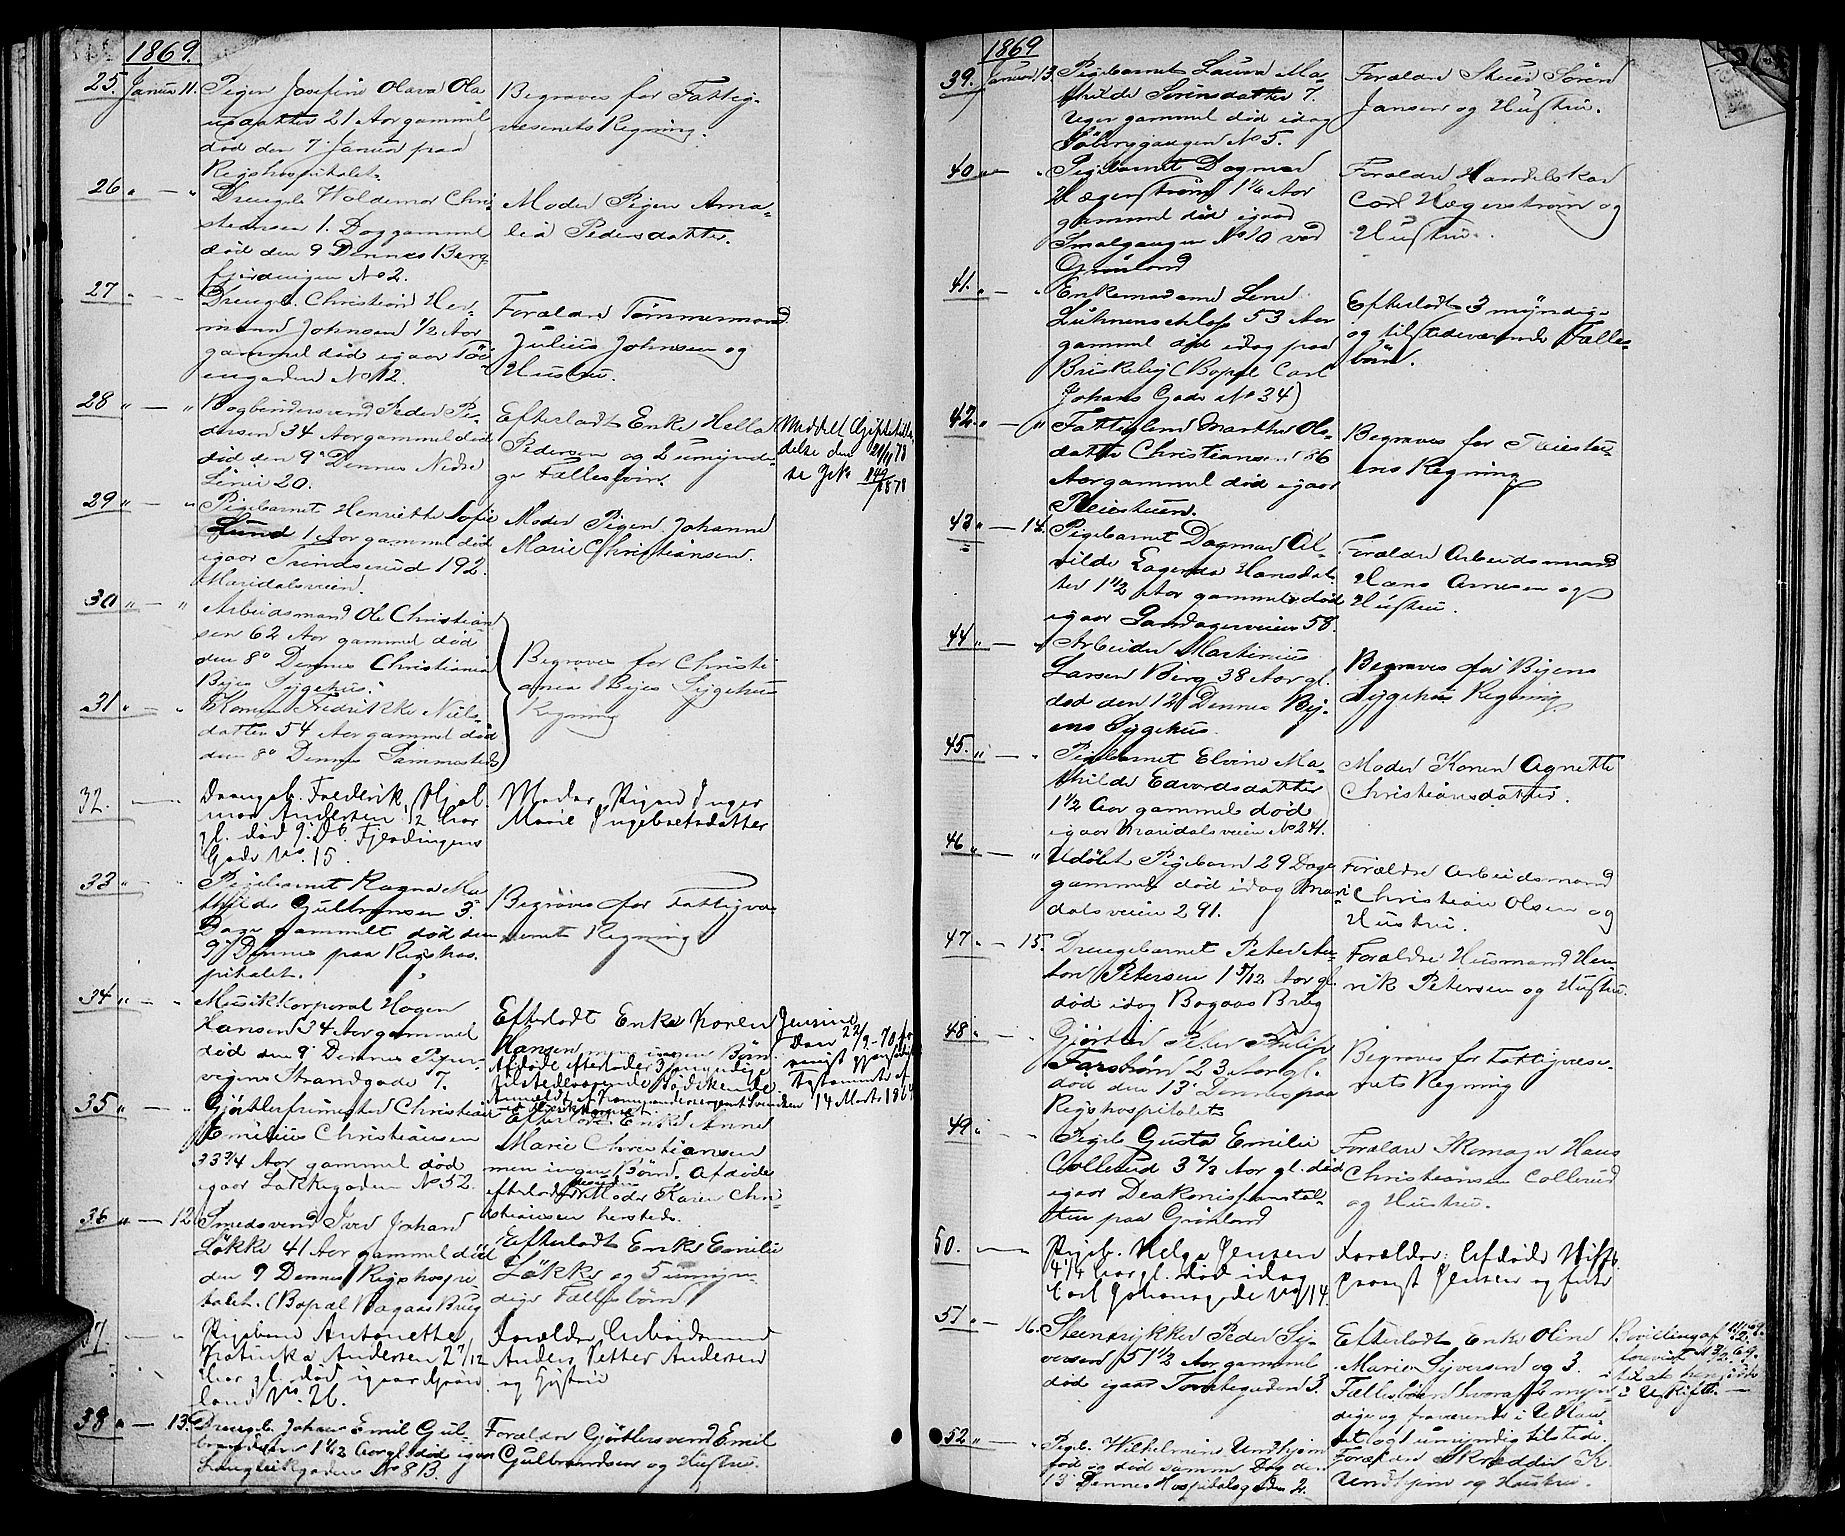 1869.
25. Januar 11. Pigen Josefine Olava Ola-
usdatter 21 Aar gammel
død den 7 Januar paa
Rigshospitalet.
Begraves for Fattig-
væsenets Regning.
26 " — " Drengeb. Waldemar Chri-
stensen 1. Dag gammel
død den 9 Dennes Berg-
fjerdingen No 2.
Moder Pigen Ama-
lia Pedersdatter.
27 " — " Drengeb. Christian Her-
mann Johnsen 1/2 Aar
gammel død igaar Tøi-
engaden No 12.
Forældre Tømmermand
Julius Johnsen og
Hustru.
28 " — " Bogbindersvend Peder Pe-
dersen 34 Aar gammel død
død den 9' Dennes Nedre
20.
Efterladt Enke Hella
Pedersen og 2 umyndi-
ge Fællesbørn.
Meddelt Skiftetilla-
delse den
se
29 " — " Pigebarnet Henriette Sofie
Lund 1 Aar gammel død
igaar 192.
Maridalsveien.
Moder Pigen Johanne
Marie Christiansen.
30 " — " Arbeidsmand Ole Christian-
sen 62 Aar gammel død
den 8' Dennes Christiania
Byes Sygehus.
Begraves for Christi-
ania Byes Sygehus
Regning
31 " — " Konen Fredrikke Niels-
datter 54 Aar gammel død
den 8' Dennes Sammesteds
32. — " Drengeb. Frederik Hjal-
mar Andersen 1/2 Aar
gl. død 9. Ds. Fjerdingens
Gade No. 15.
Moder Pigen Inger
Marie Ingebretsdatter
33 " — " Pigebarnet Ragna Ma-
thilde Gulbransen 3
Dage gammelt død den
9' Dennes paa Rigshos-
pitalet.
Begraves for Fattigvæ-
senets Regning
34 " — " Musikkorporal Hagen
Hansen 34 Aar gammel
død den 9' Dennes Piper-
vigens Strandgade 7.
Efterladt Enke Karen Jensine
Hansen men ingen Børn.
Afdøde efterlader 3 myndige
tilstedeværende Sødskende.
14 Marts 1864
35 " — " Gjørtlerfrimester Christian
Emilius Christiansen
33 3/4 Aar gammel død
igaar Lakkegaden No 52.
Efterladt Enke Anne
Marie Christiansen
men ingen Børn. Afdøde
efterlod desuden Moder Karen Chri-
stiansen hersteds.
36 " — 12. Smedsvend Iver Johan
Løkke 41 Aar gammel død
den 9 Dennes Rigshospi-
talet. (Bopæl Vagaas Brug
Efterladt Enke Emilie
Løkke og 5 umyn-
dige Fællesbørn.
37 — " Pigebarn Antonette
Katinka Andersen 2 7/12
Aar gl. død igaar Grøn-
land No. 26.
Forældre Arbeidsmand
Anders Petter Andersen
og Hustru
38 " — 13. Drengeb. Johan Emil Gul-
brandsen 1 1/2 Aar gl. død igaar
No 8 B.
Forældre Gjørtlersvend Emil
Gulbrandsen og Hustru.
1869
39. Januar 13. Pigebarnet Laura Ma-
thilde Sørensdatter 7.
Uger gammel død idag
No 5.
Forældre Skuer Søren
Jansen og Hustru.
40 " — " Pigebarnet Dagmar
Hægerstrøm 1 1/4 Aar
gammel død igaar
Smalgangen No 10 ved
Grønland
Forældre Handelskar
Carl Hægerstrøm og
Hustru.
41. " — " Enkemadame Lene
Lühnenschloss 53 Aar
gammel død idag paa
Briskeby (Bopæl Carl
Johans Gade No 34)
Efterladt 3 myndige
og tilstedeværende Fælles-
børn.
42. " — " Fattiglem Marthe Ols-
datter Christiansen 86
Aar gammel død igaar
Pleiestuen.
Begraves for Pleiestu-
ens Regning
43 " — 14. Pigebarnet Dagmar Al-
vilde Hansdat-
ter 1 1/2 Aar gammel død
igaar 58.
Forældre Arbeidsmand
Hans Arnesen og
Hustru.
44 " — " Arbeider Martinius
Larsen Berg 38 Aar gl.
død den 12 Dennes By-
ens Sygehus.
Begraves for Byens
Sygehus Regning
45. " — " Pigebarnet Elvine Ma-
thilde Edvardsdatter
1 1/2 Aar gammel død
igaar Maridalsveien No 241.
Moder Konen Agnette
Christiansdatter.
46 " — " Udøbt Pigebarn 29 Dage
gammel død idag Mari-
dalsveien 291.
Forældre Arbeidsmand
Christian Olsen og
Hustru.
47 " — 15. Drengebarnet Peter An-
ton Petersen 1 5/12 Aar gl.
død idag Bagaas Brug
Forældre Husmand Hen-
rik Petersen og Hustru.
48 " — " Gjørtler Peter Philip
23 Aar gl.
død den 13' Dennes paa
Rigshospitalet
Begraves for Fattigvæse-
nets Regning
49 " — " Pigeb. Gusta Emilie
Collerud 3 2/3 Aar gl. død
igaar Deakonisseanstal-
ten paa Grønland
Forældre Skomager Hans
Christiansen Collerud
og Hustru.
50. — Pigeb. Helga Jensen
4 1/4 Aar gl. død idag
Carl Johansgade No 14.
Forældre: Afdøde Stifts-
provst Jensen og Frue
51 " — 16. Steentrykker Peder Sy-
versen 57 1/2 Aar gammel
død igaar Torvegaden 3.
Efterladt Enke Oline
Marie Syversen og 3
Fællesbørn hvoraf 2 myn-
dige og fraværende i Udlan-
det og 1 umyndig tilstede.
Bevilling af
forevist
til at hensidde
i Uskifte. —
52 " — " Pigeb. Wilhelmine Undhjem
fød og død samme Dag den
13' Dennes Hospitalsgaden 2.
Forældre Skrædder K.
Undhjem og Hustru.